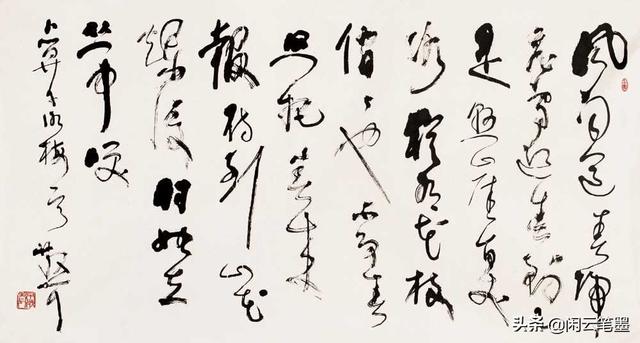 风雨送春归
飞雪迎春到已
是悬崖百丈
冰犹有花枝
俏〻也不争春
只把春来
報待到山花
烂漫时她在
丛中笑
卜算子咏梅
头条 @闲云笔墨